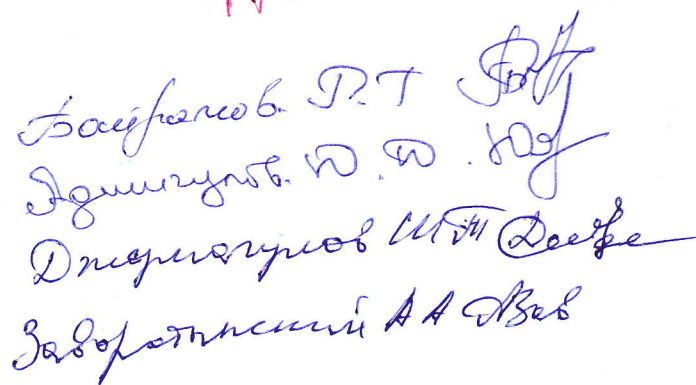 Байрамов. Р. Т
Адишгулов. Ю. Ю.
Джумагулов Ш Т
Заворотынский А А